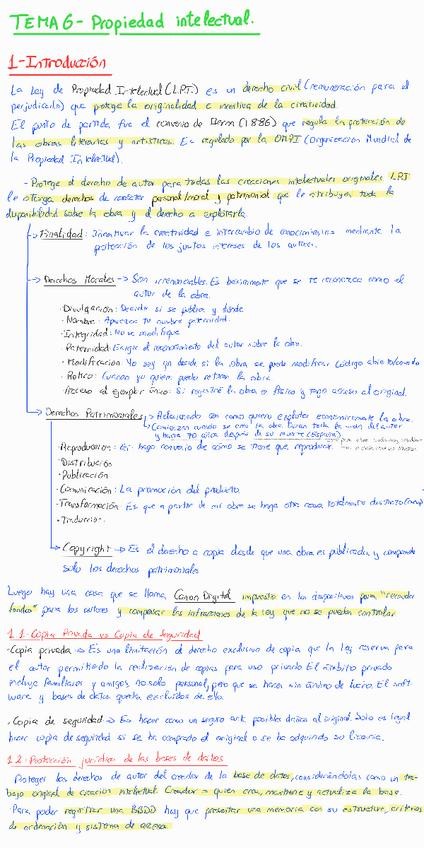 TEMA 6- Propiedad intelectual.
1-Introducción
La Ley de Propiedad Intelectual (LPI) es un derecho civil (remuneración para el
perjudicado) que protege la originalidad e inventiva de la creatividad.
El punto de partida fue el convenio de Berna (1886) que regula la protección de
las obras literarias y artísticas. Es regulado por la OMPI (Organización Mundial de
la Propiedad Intelectual).
- Protege el derecho de autor para todas las creaciones intelectuales originales. LPI
le otorga derechos de carácter personal/moral y patrimonial que le atribuyen toda la
disponibilidad sobre la obra y el derecho a explotarla
→ Finalidad: Incentivar la creatividad e intercambio de conocimientos mediante la
protección de los justos intereses de los autores.
→ Derechos Morales → Son irrenunciables. Es básicamente que se te reconozca como el
autor de la obra.
· Divulgación: Decidir si se publica y dónde
· Nombre: tu nombre
· Integridad: No se modifique
· Paternidad: Exigir el reconocimiento del autor sobre la obra.
· Modificación: Yo soy quien decide si la obra se puede modificar Código abierto/cerrado
· Retiro: Cuando yo quiera puedo retirar la obra
· Acceso al ejemplar único: Si registré la obra en físico y tengo acceso al original.
→ Derechos Patrimoniales → Relacionado con como quiero explotar económicamente la obra.
Comienzan cuando se crea la obra. Duran toda la vida del autor
y hasta 70 años después de su muerte (España)
· Reproducción: Si hago convenio de cómo se tiene que reproducir.
· Distribución
· Publicación
· Comunicación: La promoción del producto.
· Transformación: Es que a partir de mi obra se haga otra cosa totalmente distinta
· Traducción.
→ Copyright → Es el derecho a copia desde que una obra es publicada y comprende
solo los derechos patrimoniales
Luego hay una cosa que se llama Canon Digital impuesto en los dispositivos para "recaudar
fondos" para los autores y compensar las infracciones de la ley que no se pueden controlar
1.1-Copia Privada vs Copia de Seguridad
-Copia privada → Es una limitación al derecho exclusivo de copia que la ley reserva para
el autor permitiendo la realización de copias para uso privado El ámbito privado
incluye familiares y amigos no solo personal, pero que se hagan sin ánimo de lucro. El soft-
ware y bases de datos quedan excluidos de ella.
. Copia de seguridad → Es hacer como un seguro ante posibles daños al original. Solo es legal
hacer copia de seguridad si se ha comprado el original o se ha adquirido su licencia.
1.2-Protección jurídica de las bases de datos
Proteger los derechos de autor del creador de la base de datos, considerándolas como un tra-
bajo original de creación intelectual. Creador = quien crea, mantiene y actualiza la base.
Para poder registrar una BBDD hay que presentar una memoria con su estructura, criterios
de ordenación y sistema de acceso.